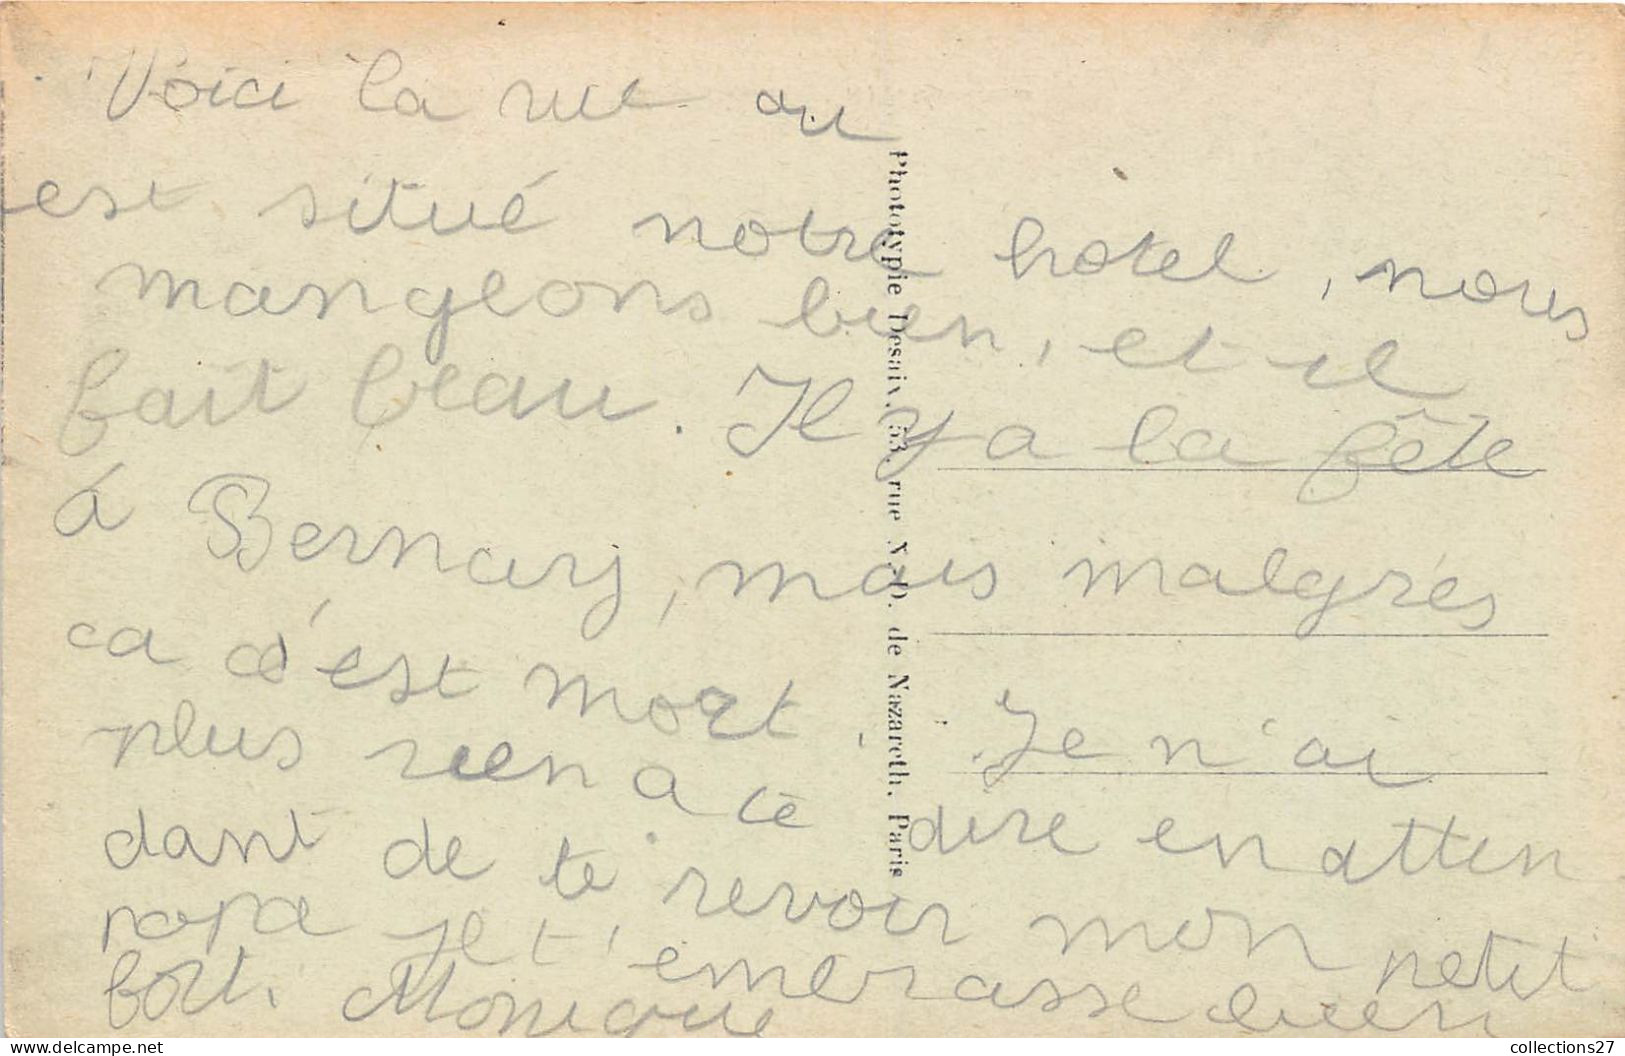 Voici la rue ou
est situé notre hotel, nous
mangeons bien, et il
fait beau. Il y a la fête
à Bernay, mais malgrés
ca c'est mort. Je n'ai
plus rien a te dire en atten
dant de te revoir mon petit
papa je t'embrasse bien
fort. Monique
Phototypie Desaix, 53, rue N.-D. de Nazareth, Paris
collections27